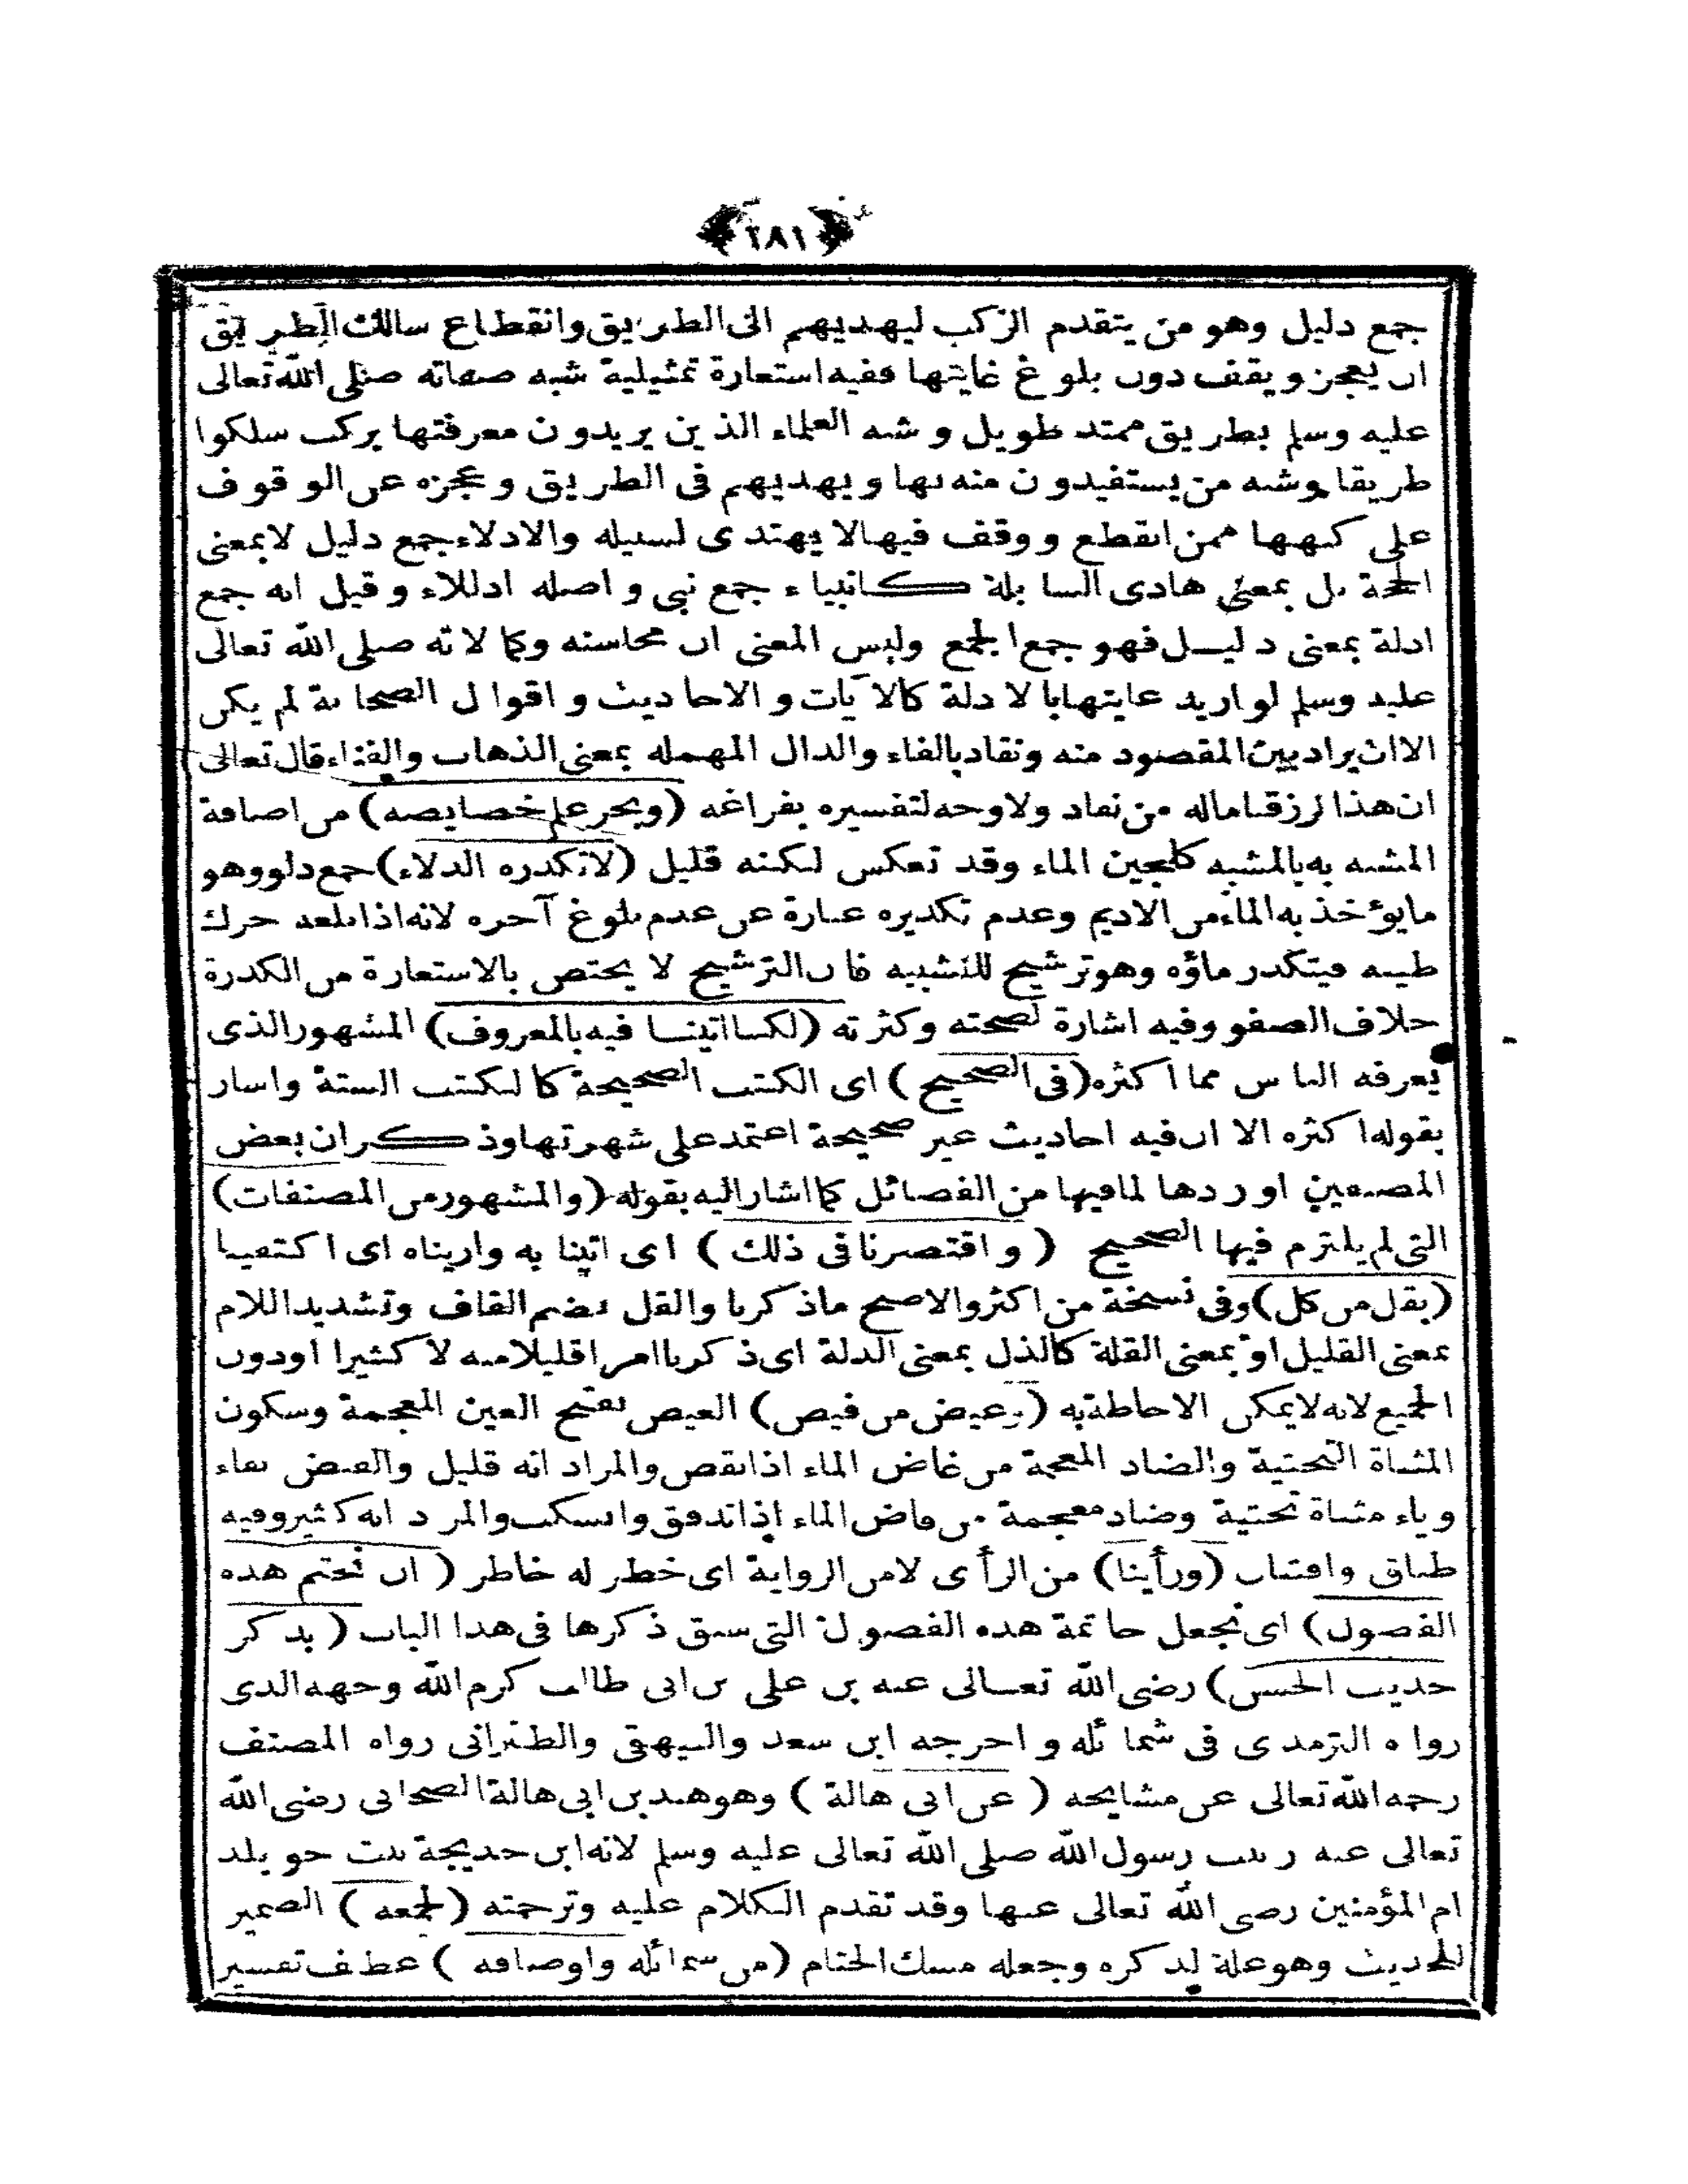 ﴿٢٨١﴾
جمع دليل وهو من يتقدم الركب ليهديهم الى الطريق وانقطاع سالك الطريق
ان يعجز ويقف دون بلوغ غايتها ففيه استعارة تمثيلية شبه صفاته صلى الله تعالى
عليه وسلم بطريق ممتد طويل وشبه العلماء الذين يريدون معرفتها بركب سلكوا
طريقا وشبه من يستفيدون منه بها ويهديهم فى الطريق وعجزه عن الوقوف
على كنهها ممن انقطع ووقف فيها لا يهتدى لسبيله والادلاء جمع دليل لا بمعنى
الحجة بل بمعنى هادى السابلة كانبياء جمع نبى واصله ادللاء وقيل انه جمع
ادلة بمعنى دليل فهو جمع الجمع وليس المعنى ان محاسنه وكمالاته صلى الله تعالى
عليه وسلم لو اريد غايتها بالادلة كالآيات والاحاديث واقوال الصحابة لم يكن
الا ان يراد يبين المقصود منه ونفاد بالفاء والدال المهمله بمعنى الذهاب والفناء قال تعالى
ان هذا لرزقنا ماله من نفاد ولا وجه لتفسيره بفراغه (وبحر علم خصايصه) من اضافة
المشبه به بالمشبه كلجين الماء وقد تعكس لكنه قليل (لا تكدره الدلاء) جمع دلو وهو
ما يؤخذ به الماء من الاديم وعدم تكديره عبارة عن عدم بلوغ آخره لانه اذا بلغه حرك
طينه فيتكدر ماؤه وهو ترشيح للتشبيه فان الترشيح لا يختص بالاستعارة من الكدرة
خلاف الصفو وفيه اشارة لصحته وكثرته (لكنا اتينا فيه بالمعروف) المشهور الذى
يعرفه الناس مما اكثره (فى الصحيح) اى الكتب الصحيحة كالكتب الستة واشار
بقوله اكثره الا ان فيه احاديث غير صحيحة اعتمد على شهرتها وذكر ان بعض
المصنفين اوردها لما فيها من الفضائل كما اشار اليه بقوله (والمشهور من المصنفات)
التى لم يلتزم فيها الصحيح (واقتصرنا فى ذلك) اى اتينا به واريناه اى اكتفينا
(بقل من كل) وفى نسخة من اكثر والاصح ما ذكرنا والقل بضم القاف وتشديد اللام
بمعنى القليل او بمعنى القلة كالذل بمعنى الذلة اى ذكرنا امرا قليلا منه لا كثيرا او دون
الجميع لانه لا يمكن الاحاطة به (وغيض من فيض) الغيض بفتح الغين المعجمة وسكون
المثناة التحتية والضاد المعجمة من غاض الماء اذا نقص والمراد انه قليل والفيض بفاء
وياء مثناة تحتية وضاد معجمة من فاض الماء اذا تدفق وانسكب والمراد انه كثير وفيه
طباق وافتنان (ورأينا) من الرأى لا من الرواية اى خطر له خاطر (ان نختم هذه
الفصول) اى نجعل خاتمة هذه الفصول التى سبق ذكرها فى هذا الباب (بذكر
حديث الحسن) رضى الله تعالى عنه بن على بن ابى طالب كرم الله وجهه الذى
رواه الترمذى فى شمائله واخرجه ابن سعد والبيهقى والطبرانى رواه المصنف
رحمه الله تعالى عن مشايخه (عن ابى هالة) وهو هند بن ابى هالة الصحابى رضى الله
تعالى عنه ربيب رسول الله صلى الله تعالى عليه وسلم لانه ابن خديجة بنت خويلد
ام المؤمنين رضى الله تعالى عنها وقد تقدم الكلام عليه وترجمته (لجمعه) الضمير
للحديث وهو علة لذكره وجعله مسك الختام (من شمائله واوصافه) عطف تفسير